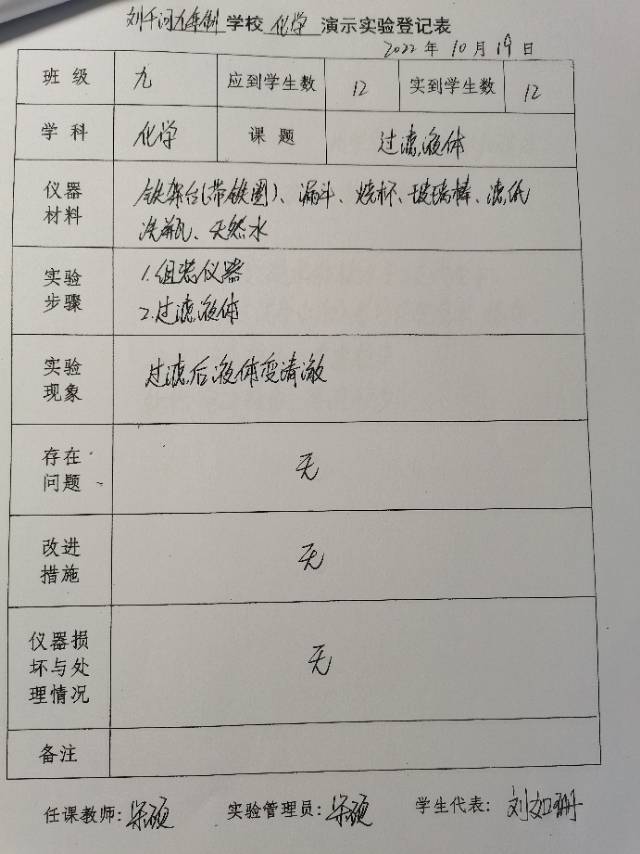 刘千河九年制学校 化学 演示实验登记表
2022年10月19日
班级 九 应到学生数 12 实到学生数 12
学科 化学 课题 过滤液体
仪器材料 铁架台(带铁圈)、漏斗、烧杯、玻璃棒、滤纸
洗瓶、天然水
实验步骤 1.组装仪器
2.过滤液体
实验现象 过滤后液体变清澈
存在问题 无
改进措施 无
仪器损坏与处理情况 无
备注
任课教师: 硕 实验管理员: 硕 学生代表: 刘如珊